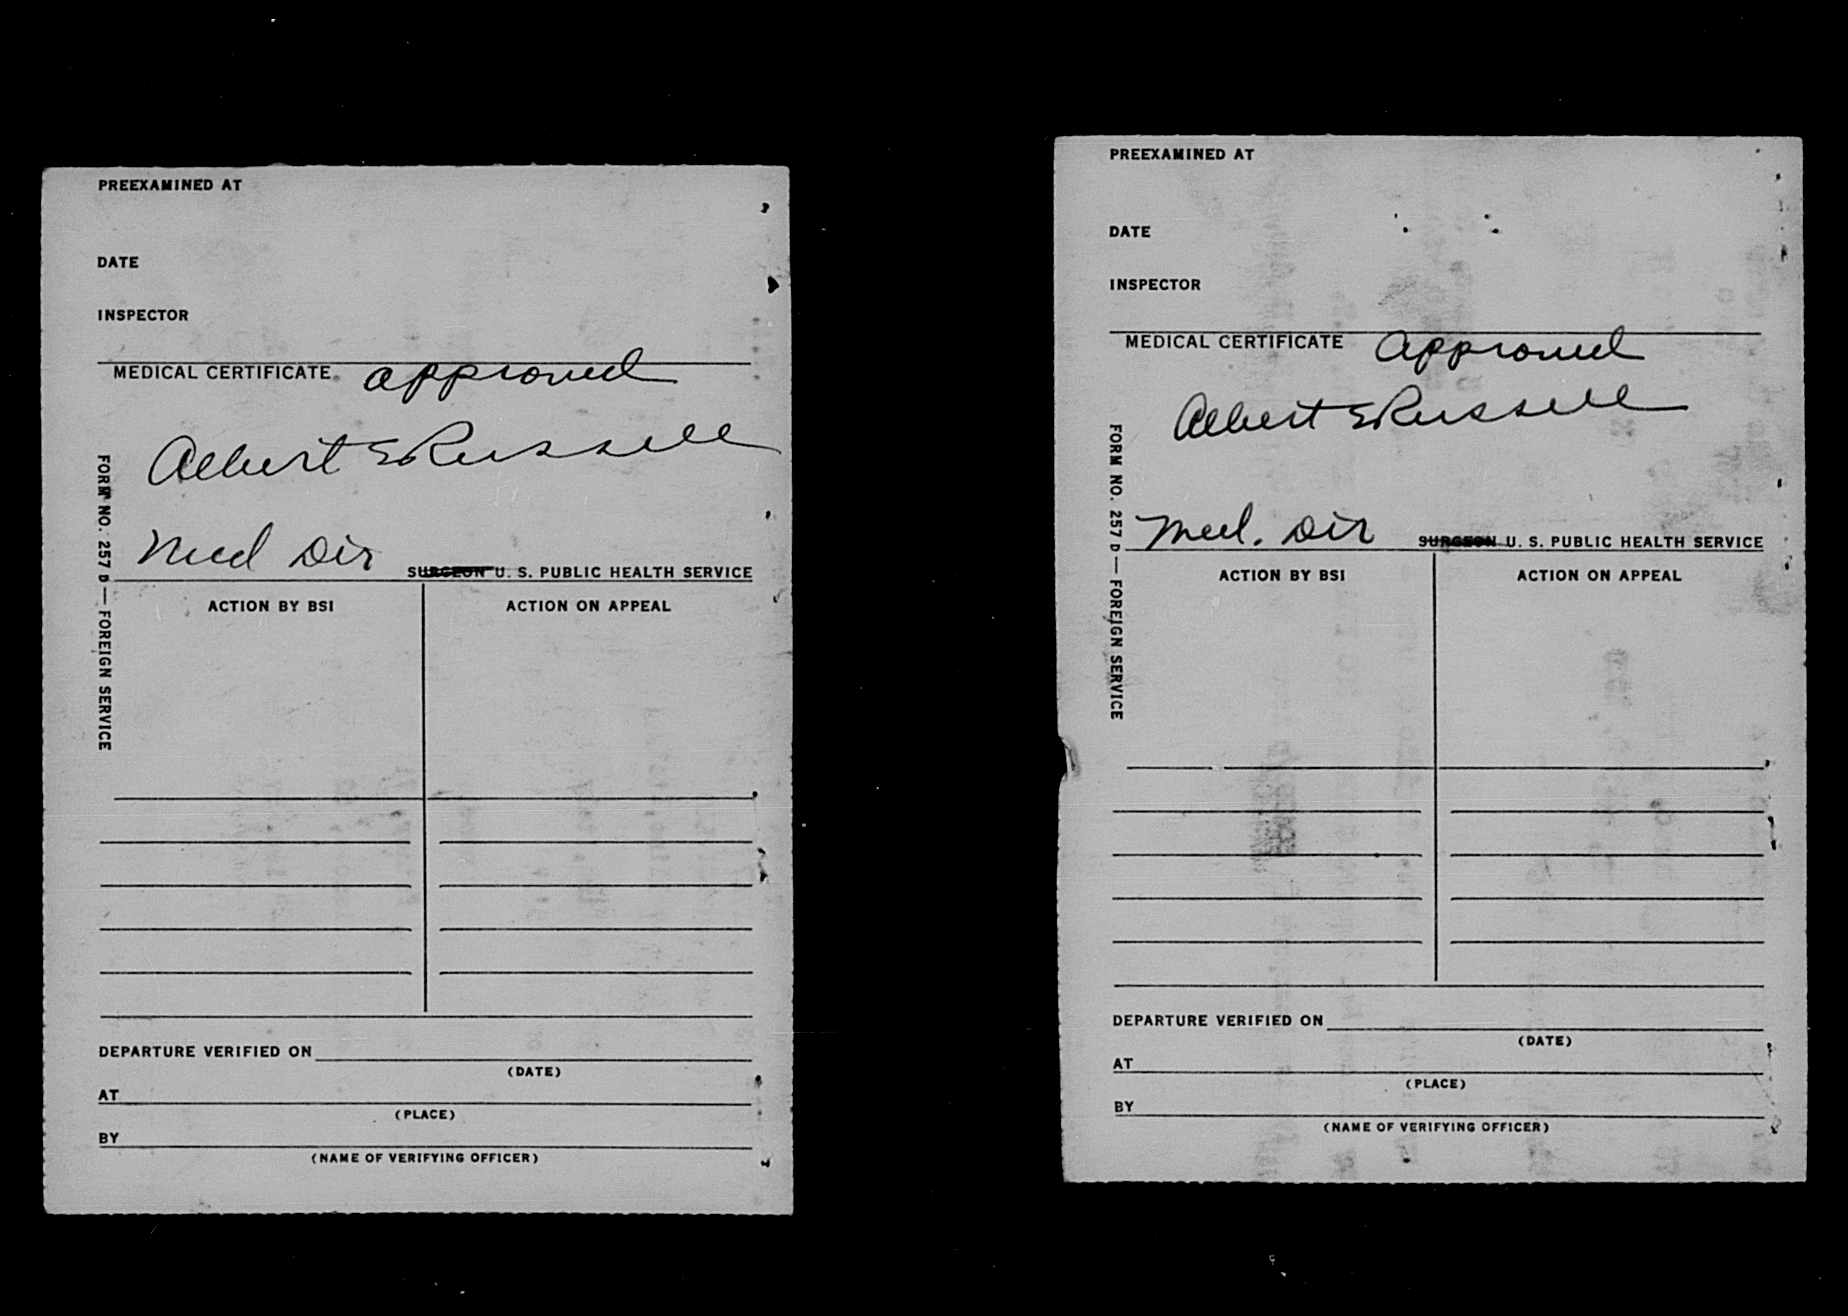 PREEXAMINED AT
DATE
INSPECTOR
MEDICAL CERTIFICATE approved
Albert E Russell
Med Dir
SURGEON U. S. PUBLIC HEALTH SERVICE
FORM NO. 257 D — FOREIGN SERVICE
ACTION BY BSI
ACTION ON APPEAL
DEPARTURE VERIFIED ON
(DATE)
AT
(PLACE)
BY
(NAME OF VERIFYING OFFICER)
PREEXAMINED AT
DATE
INSPECTOR
MEDICAL CERTIFICATE Approved
Albert E Russell
Med. Dir
SURGEON U. S. PUBLIC HEALTH SERVICE
FORM NO. 257 D — FOREIGN SERVICE
ACTION BY BSI
ACTION ON APPEAL
DEPARTURE VERIFIED ON
(DATE)
AT
(PLACE)
BY
(NAME OF VERIFYING OFFICER)